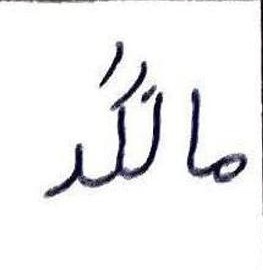 مالگد